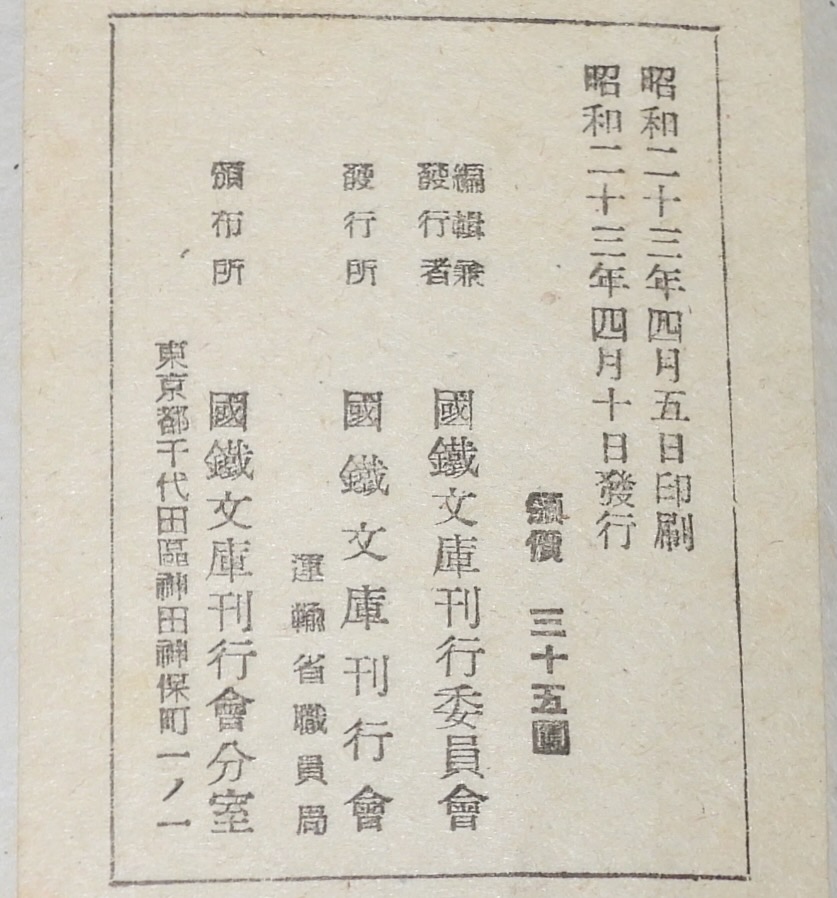 昭和二十三年四月五日印刷
昭和二十三年四月十日發行
頒價 三十五圓
編輯兼
發行者 國鐵文庫刊行委員會
發行所 國鐵文庫刊行會
運輸省職員局
頒布所 國鐵文庫刊行會分室
東京都千代田區神田神保町一ノ一